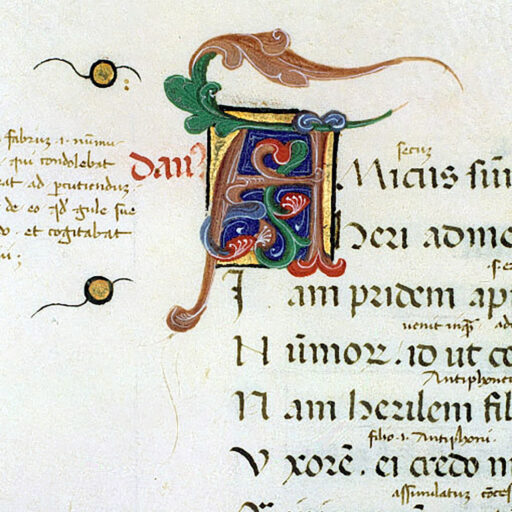 fabruz .i. nūmu
qui condolebat
at ad p̱cutienduz
de eo q̄d gule sue
et cogitabat
dauꝰ
secuz
AMicus sūm
heri ad me
Iam pridem apu
uenit inq̄ ad
Nūmorꝝ . id ut co
Antiphoni
Nam herilem fil
filio .i. Antiphoni.
Vxorē . ei credo m
assimulatuz